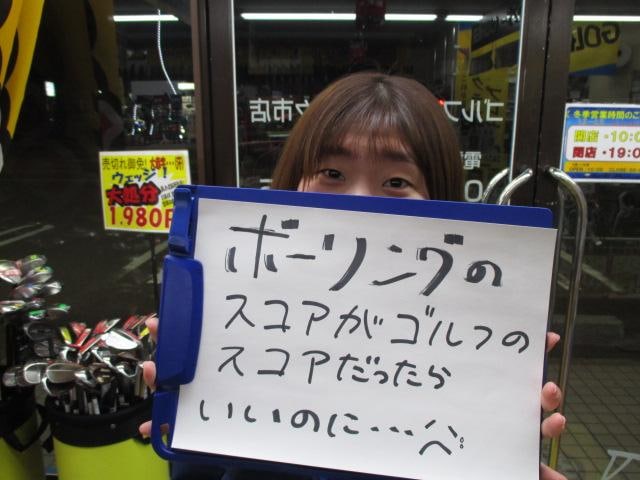 ボーリングの
スコアがゴルフの
スコアだったら
いいのに…
売切れ御免!
ウェッジ!
大処分
1.980円
ゴルフ
市店
GOL
冬季営業時間の
開店・10:0
閉店・19:0